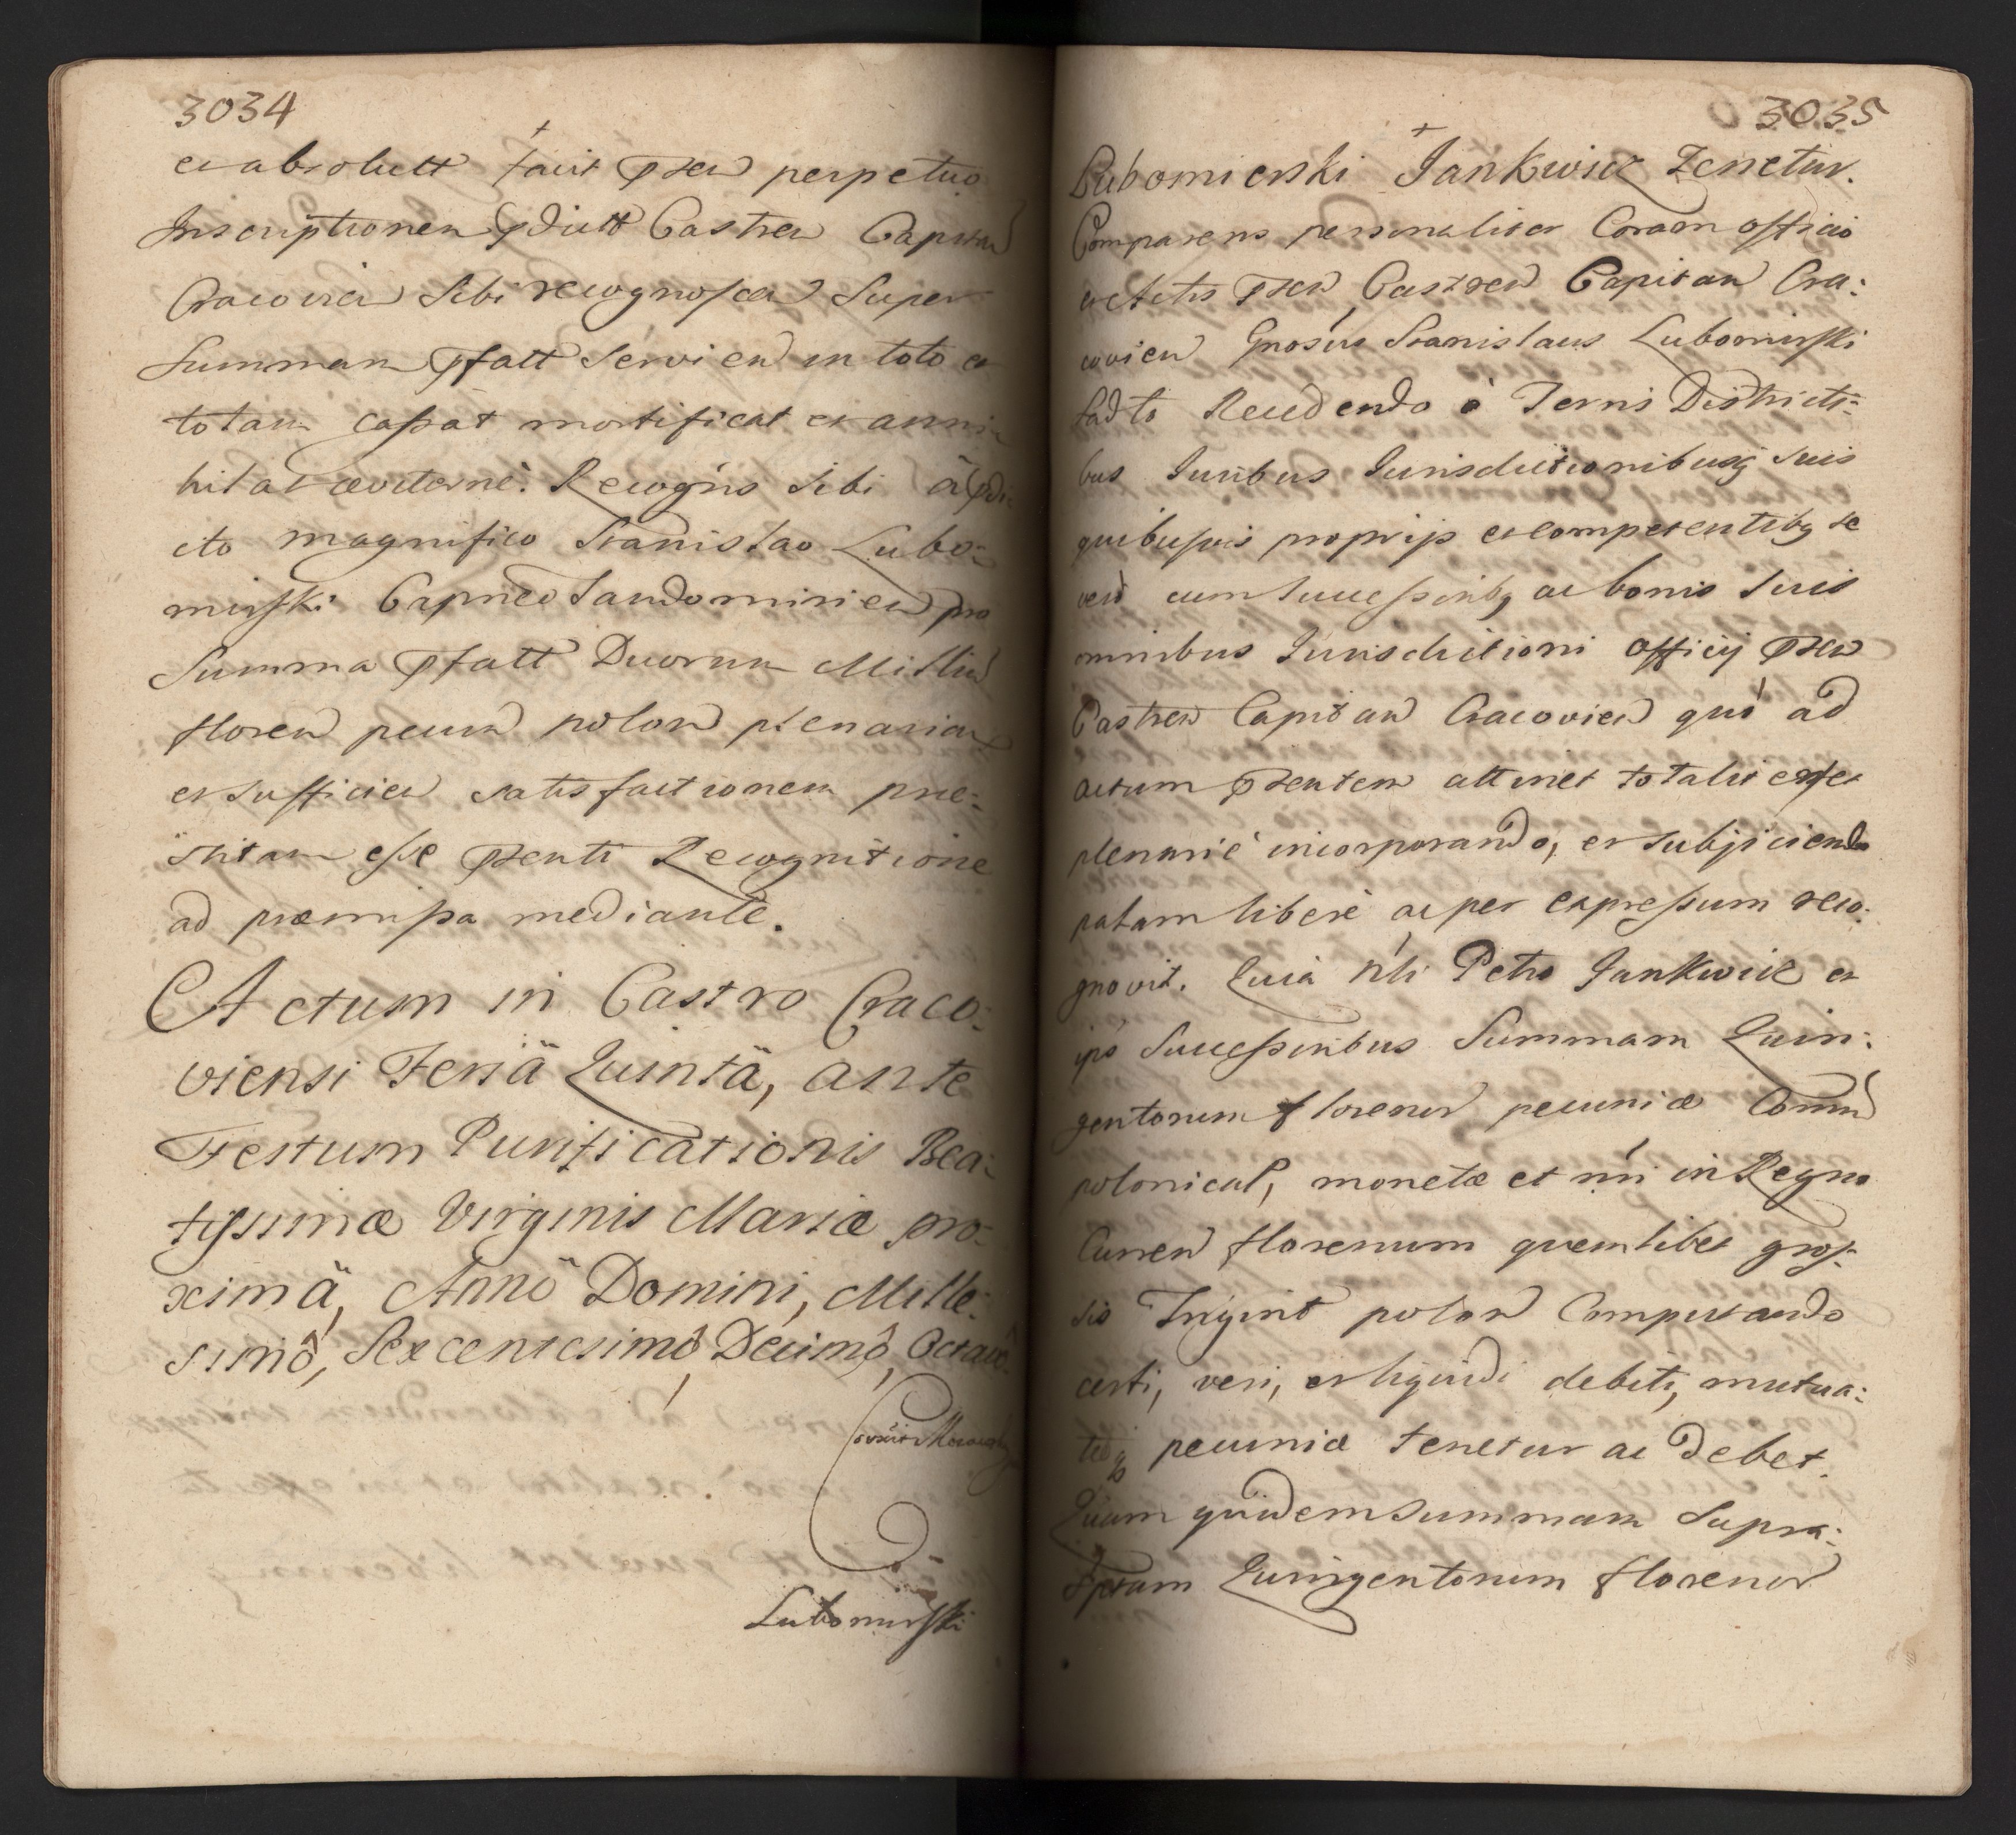 3034
et absolutt facit pñtem perpetuo
Inscriptionem pdictt Castren Capitan
Cracovien Sibi recognoscen Super
Summam pfatt Servien in toto et
totam cassat mortificat et anni
hilat æviterne. Recogñs Sibi à pdi
cto magnifico Stanislao Lubo:
mirski Capneo Sandomirien pro
Summa pfatt Duorum Milliu
floren pecun polon plenariam
et sufficien satisfactionem præ:
stitam esse pñti Recognitione
ad præmissa mediante.
Actum in Castro Craco:
viensi Feriä Quintä, ante
Festum Purificationis Bea:
tissimæ Virginis Mariæ pro:
ximä, Annö Domini, Mille:
simô, Sexcentesimô, Decimô, Octavô
Lubomirski
3035
Lubomierski Jankwicz Tenetur.
Comparens personaliter Coram officio
et Actis pñt Castren Capitan Cra:
covien Gnosus Stanislaus Lubomirski
fadto Recedendo à Terris Districti:
bus Juribus Jurisdictionibusq suis
quibusvis proprijs et competentibq se
vero cum Successoribq ac bonis suis
omnibus Jurisdictioni officij pñt
Castren Capitan Cracovien quó ad
actum pñtem attinet totaliter et
plenarié incorporando, et subjiciendo
palam liberè ac per expressum reco:
gnovit. Quia Nli Petro Jankwicz et
ips Successoribus Summam Quin:
gentorum florenor pecuniæ Comun
polonical, monetæ et nri in Regno
Curren florenum quemlibet gros:
sis Trigint polon Computando
certi, veri, et liquidi debiti, mutua:
teq pecuniæ tenetur ac debet.
Quam quidem summam Supra:
sptam Quingentorum florenor